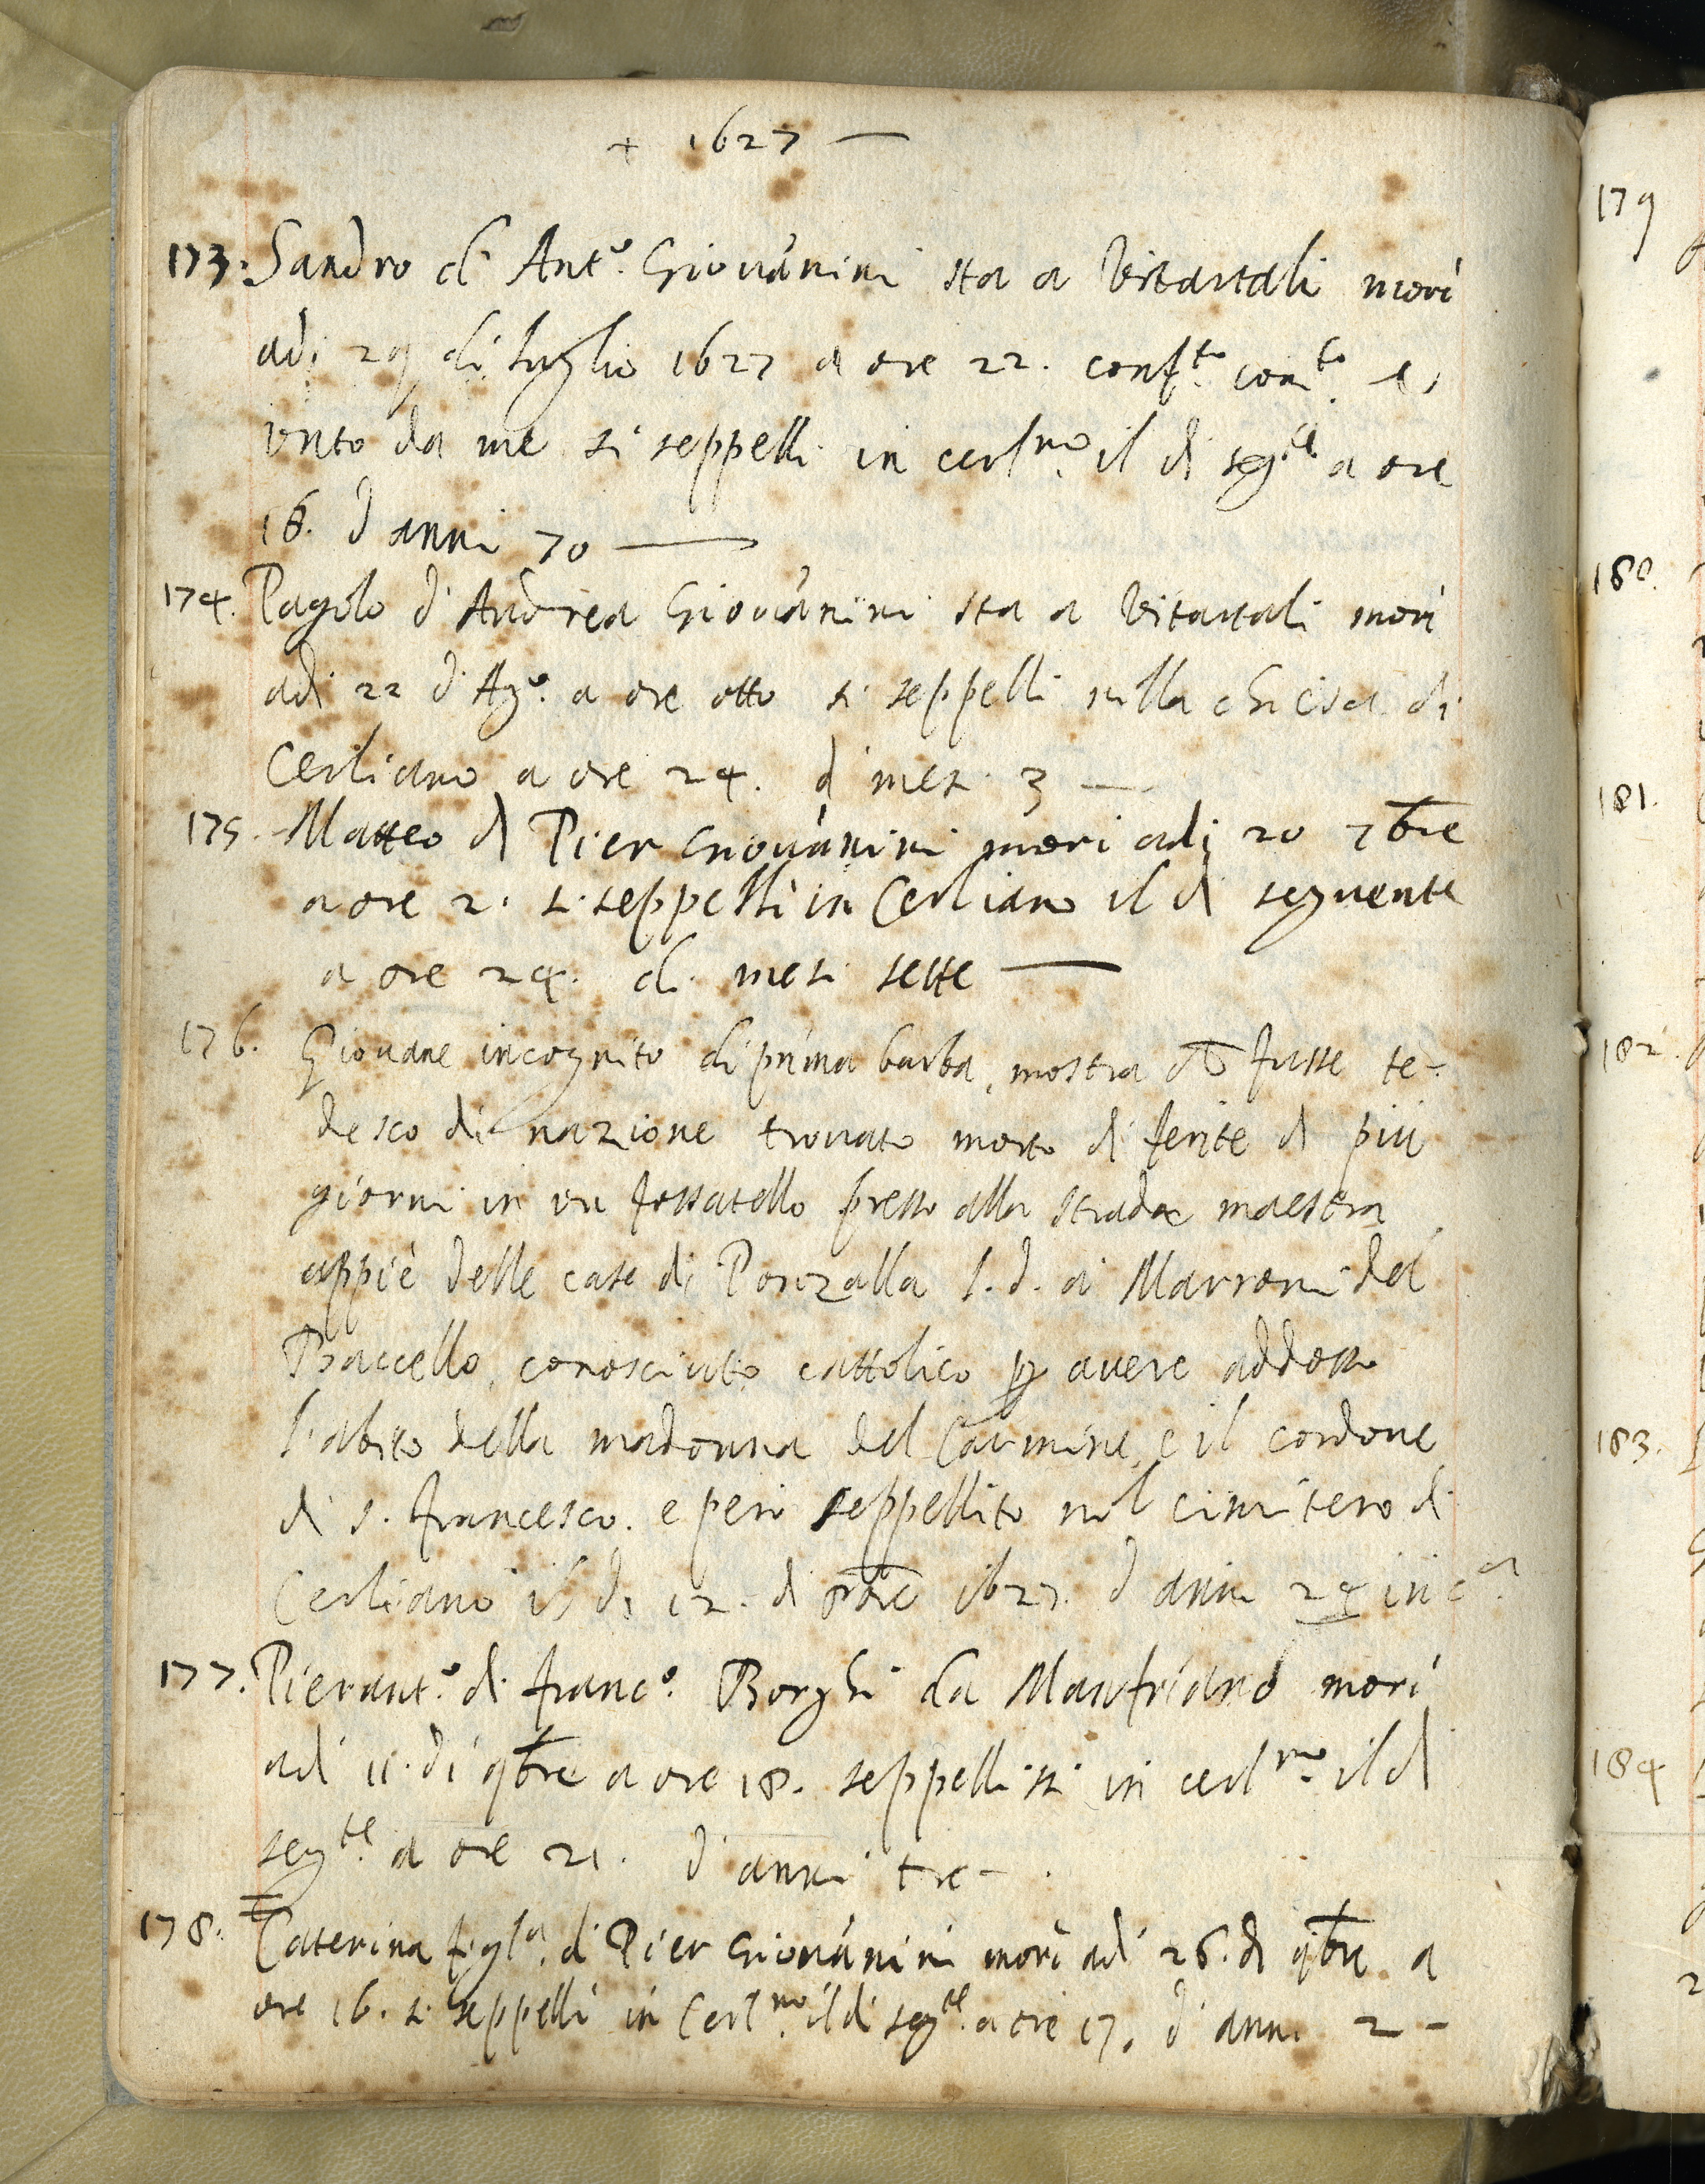 + 1627 —
173. Sandro di Ant.º Giovánini sta a Vitartali morì
adi 29 di luglio 1627 a ore 22. conf.to com.to e
unto da me si seppellì in cerl.no il dì seg.te a ore
16. d anni 70 —
174. Pagolo d'Andrea Giovánini sta a Vitartali morì
adi 22 d'Ag.º a ore otto si seppellì nella chiesa di
Cerliano a ore 24. d mesi 3 —
175. Matteo di Pier Giovánini morì adi 20 7bre
a ore 2. si seppellì in Cerliano il dì seguente
a ore 24. di mesi sette —
176. Giovane incognito di prima barba, mostra ch fusse te-
desco di nazione trovato morto di ferite di più
giorni in un fossatello presso alla strada maestra
appiè delle case di Ponzalla l.d. ai Marroni del
Baccello, conosciuto cattolico p avere addosso
l'abito della madonna del Carmine, e il cordone
di s. francesco. e però seppellito nel cimitero di
Cerliano il dì 12. di 8bre 1627. d anni 24 in c.a
177. Pierant.º di franc.º Borghi da Manfriano morì
adi 11. di 9bre a ore 18. seppellissi in cerl.no il dì
seg.te a ore 21. d'anni tre -
178. Caterina figl.a di Pier Giovánini morì adi 26. di 9bre a
ore 16. si seppellì in Cerl.no il dì seg.te a ore 17. d'anni 2 -
179
180.
181.
182.
183.
184